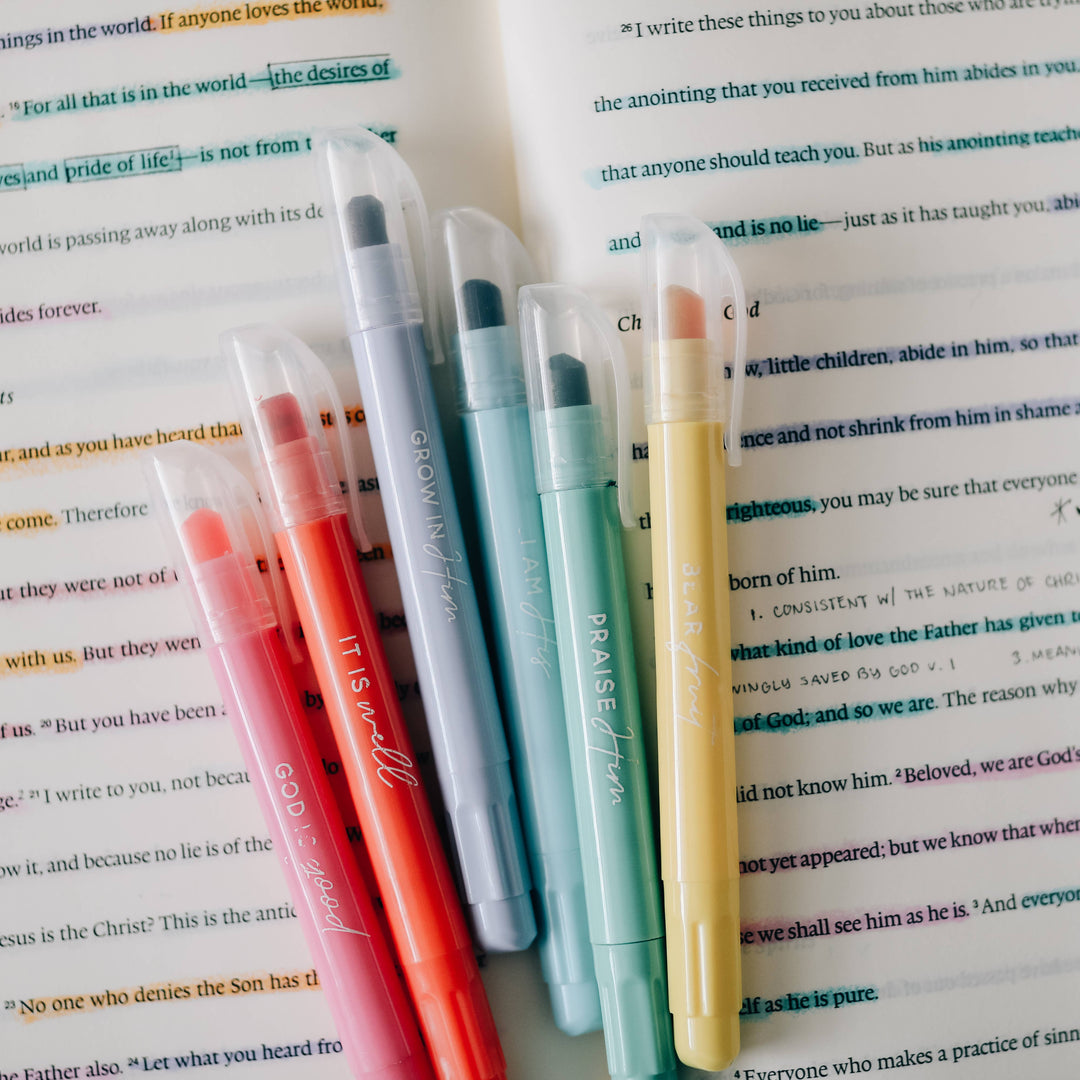 things in the world. If anyone loves the world,
¹⁶ For all that is in the world—the desires of
and pride of life¹—is not from
world is passing away along with its
forever.
and as you have heard that
come. Therefore
they were not of
with us. But they
of us. ²⁰ But you have been
²¹ I write to you, not
it, and because no lie is of the
the Christ? This is the
²³ No one who denies the Son has
the Father also. ²⁴ Let what you heard
²⁶ I write these things to you about those who are
the anointing that you received from him abides in you,
that anyone should teach you. But as his anointing
and and is no lie—just as it has taught you,
God
little children, abide in him, so that
and not shrink from him in shame
righteous, you may be sure that everyone
born of him.
1. CONSISTENT W/ THE NATURE OF
what kind of love the Father has given
SAVED BY GOD V. 1 3.
of God; and so we are. The reason why
did not know him. ² Beloved, we are God's
not yet appeared; but we know that when
we shall see him as he is. ³ And
as he is pure.
⁴ Everyone who makes a practice of
GOD IS good
IT IS well
GROW IN Him
I AM His
PRAISE Him
BEAR fruit